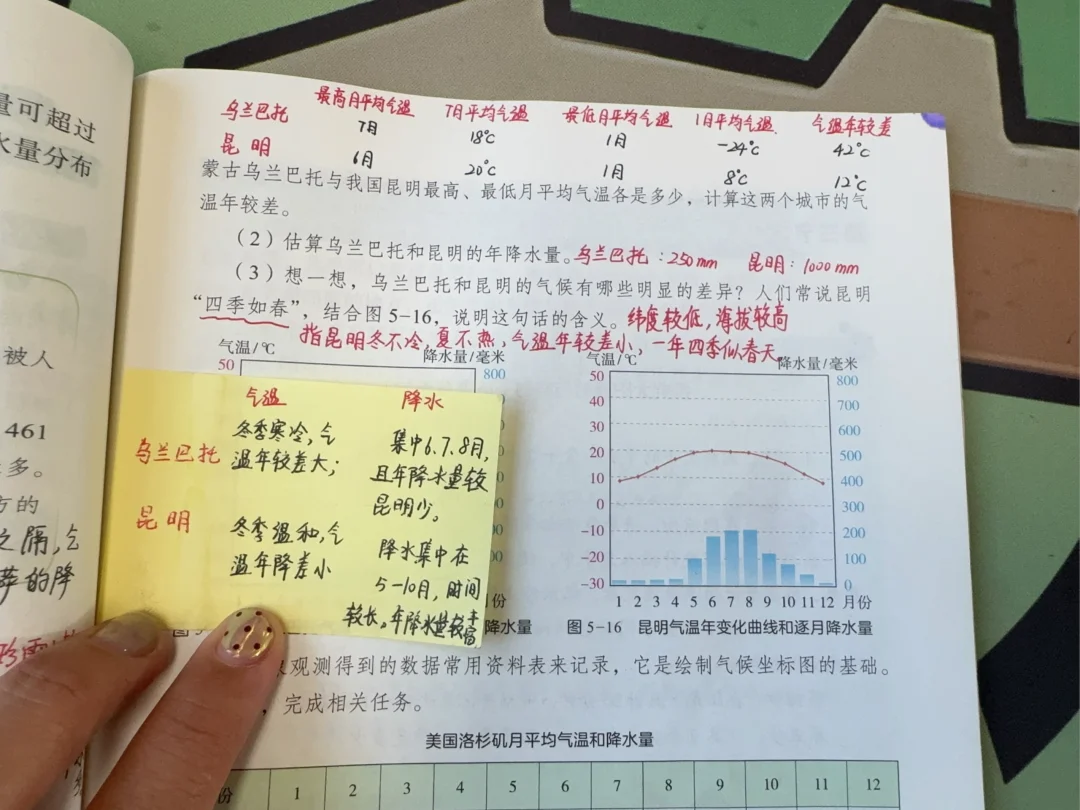 量可超过
水量分布
被人
461
多。
方的
之隔,气
的降
最高月平均气温 7月平均气温 最低月平均气温 1月平均气温 气温年较差
乌兰巴托 7月 18℃ 1月 -24℃ 42℃
昆明 6月 20℃ 1月 8℃ 12℃
蒙古乌兰巴托与我国昆明最高、最低月平均气温各是多少,计算这两个城市的气
温年较差。
(2)估算乌兰巴托和昆明的年降水量。乌兰巴托:250mm 昆明:1000mm
(3)想一想,乌兰巴托和昆明的气候有哪些明显的差异?人们常说昆明
“四季如春”,结合图5-16,说明这句话的含义。纬度较低,海拔较高
指昆明冬不冷,夏不热,气温年较差小,一年四季似春天。
气温/℃ 降水量/毫米
50 800
气温 降水
乌兰巴托
冬季寒冷,气
温年较差大;
集中6.7.8月,
且年降水量较
昆明少。
昆明
冬季温和,气
温年降差小
降水集中在
5-10月,时间
较长。年降水量较丰富
月份
降水量
气温/℃ 降水量/毫米
50 800
40 700
30 600
20 500
10 400
0 300
-10 200
-20 100
-30 0
1 2 3 4 5 6 7 8 9 10 11 12 月份
图5-16 昆明气温年变化曲线和逐月降水量
观测得到的数据常用资料表来记录,它是绘制气候坐标图的基础。
,完成相关任务。
美国洛杉矶月平均气温和降水量
份 1 2 3 4 5 6 7 8 9 10 11 12